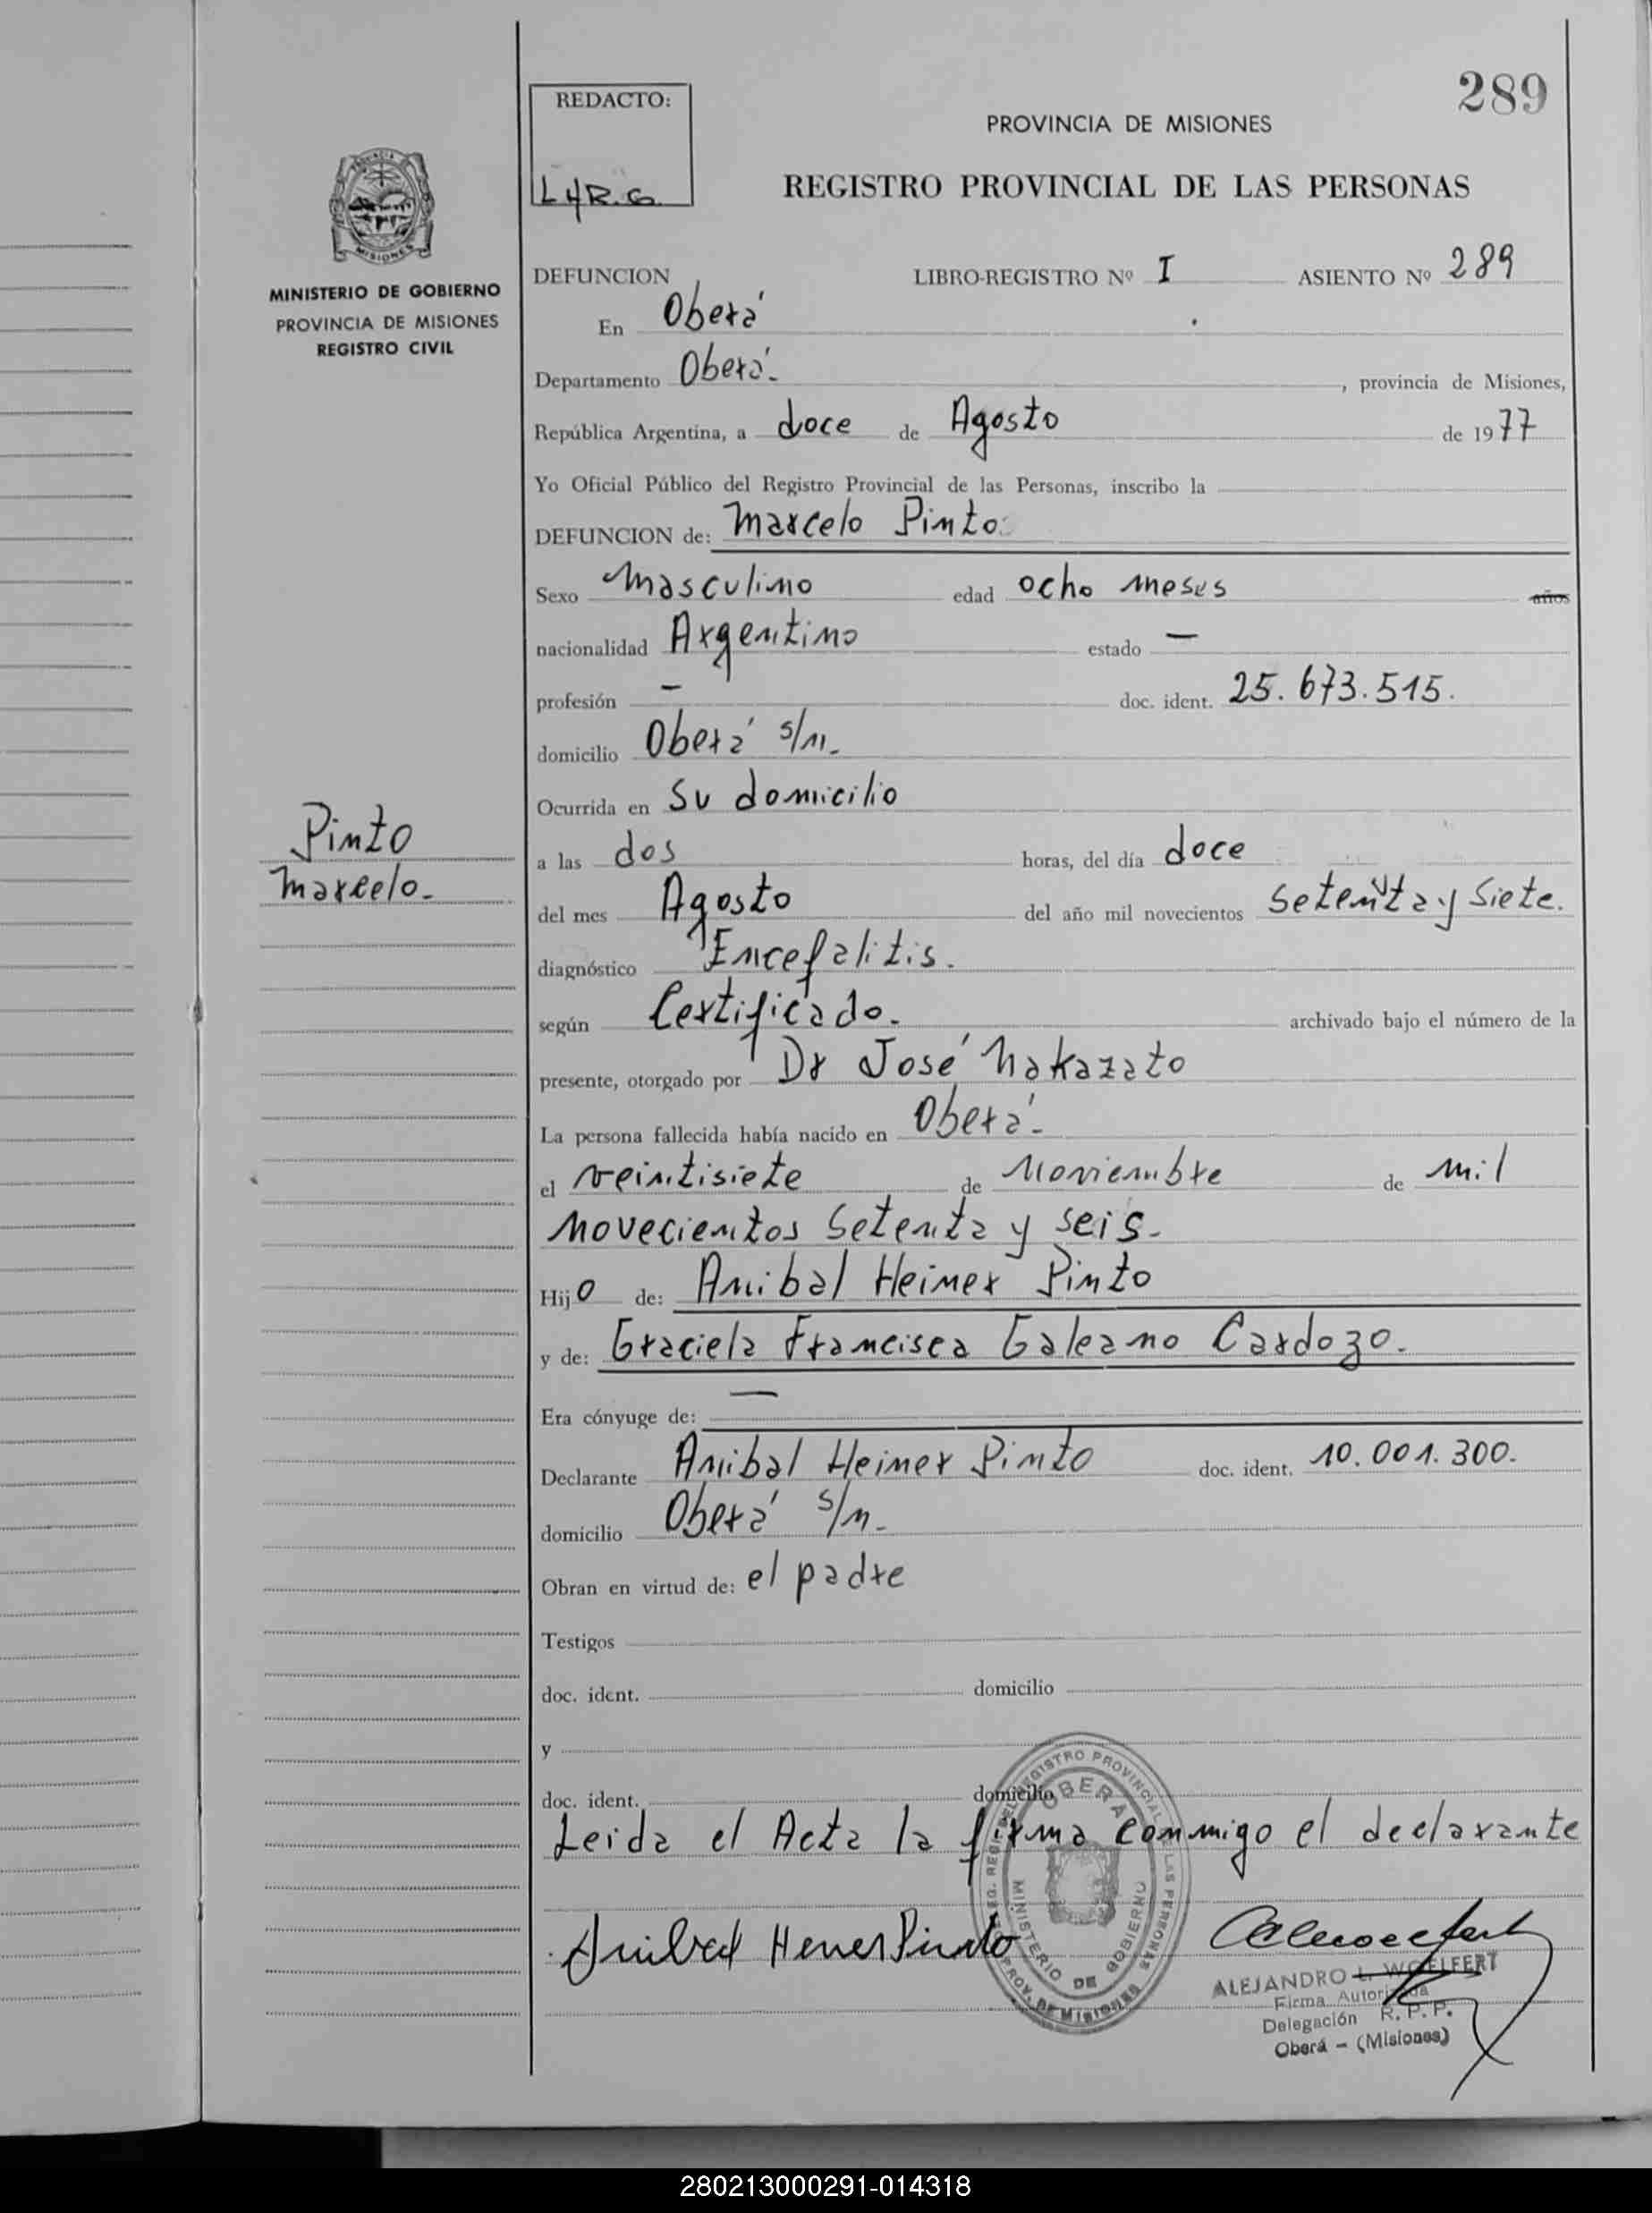 289
REDACTO:
L4R.G.
PROVINCIA DE MISIONES
REGISTRO PROVINCIAL DE LAS PERSONAS
PROVINCIA DE
MISIONES
MINISTERIO DE GOBIERNO
PROVINCIA DE MISIONES
REGISTRO CIVIL
DEFUNCION LIBRO-REGISTRO Nº I ASIENTO Nº 289
En Oberá
Departamento Oberá.- , provincia de Misiones,
República Argentina, a doce de Agosto de 1977
Yo Oficial Público del Registro Provincial de las Personas, inscribo la
DEFUNCION de: Marcelo Pinto.
Sexo Masculino edad ocho meses años
nacionalidad Argentino estado —
profesión — doc. ident. 25.673.515.
domicilio Oberá s/n.
Ocurrida en Su domicilio
a las dos horas, del día doce
del mes Agosto del año mil novecientos Setenta y Siete.
diagnóstico Encefalitis.
según Certificado.- archivado bajo el número de la
presente, otorgado por Dr José Nakazato
La persona fallecida había nacido en Oberá.-
el veintisiete de Noviembre de mil
Novecientos Setenta y seis.-
Hijo de: Anibal Heiner Pinto
y de: Graciela Francisca Galeano Cardozo.
Era cónyuge de: —
Declarante Anibal Heiner Pinto doc. ident. 10.001.300.
domicilio Oberá s/n.-
Obran en virtud de: el padre
Testigos
doc. ident. domicilio
y
doc. ident. domicilio
Leida el Acta la firma conmigo el declarante
Pinto
Marcelo.-
Anibal Hener Pinto
REGISTRO PROVINCIAL DE LAS PERSONAS
OBERA
MINISTERIO DE GOBIERNO
PROV. DE MISIONES
ALEJANDRO L. WOELFERT
Firma Autorizada
Delegación R. P. P.
Oberá - (Misiones)
280213000291-014318